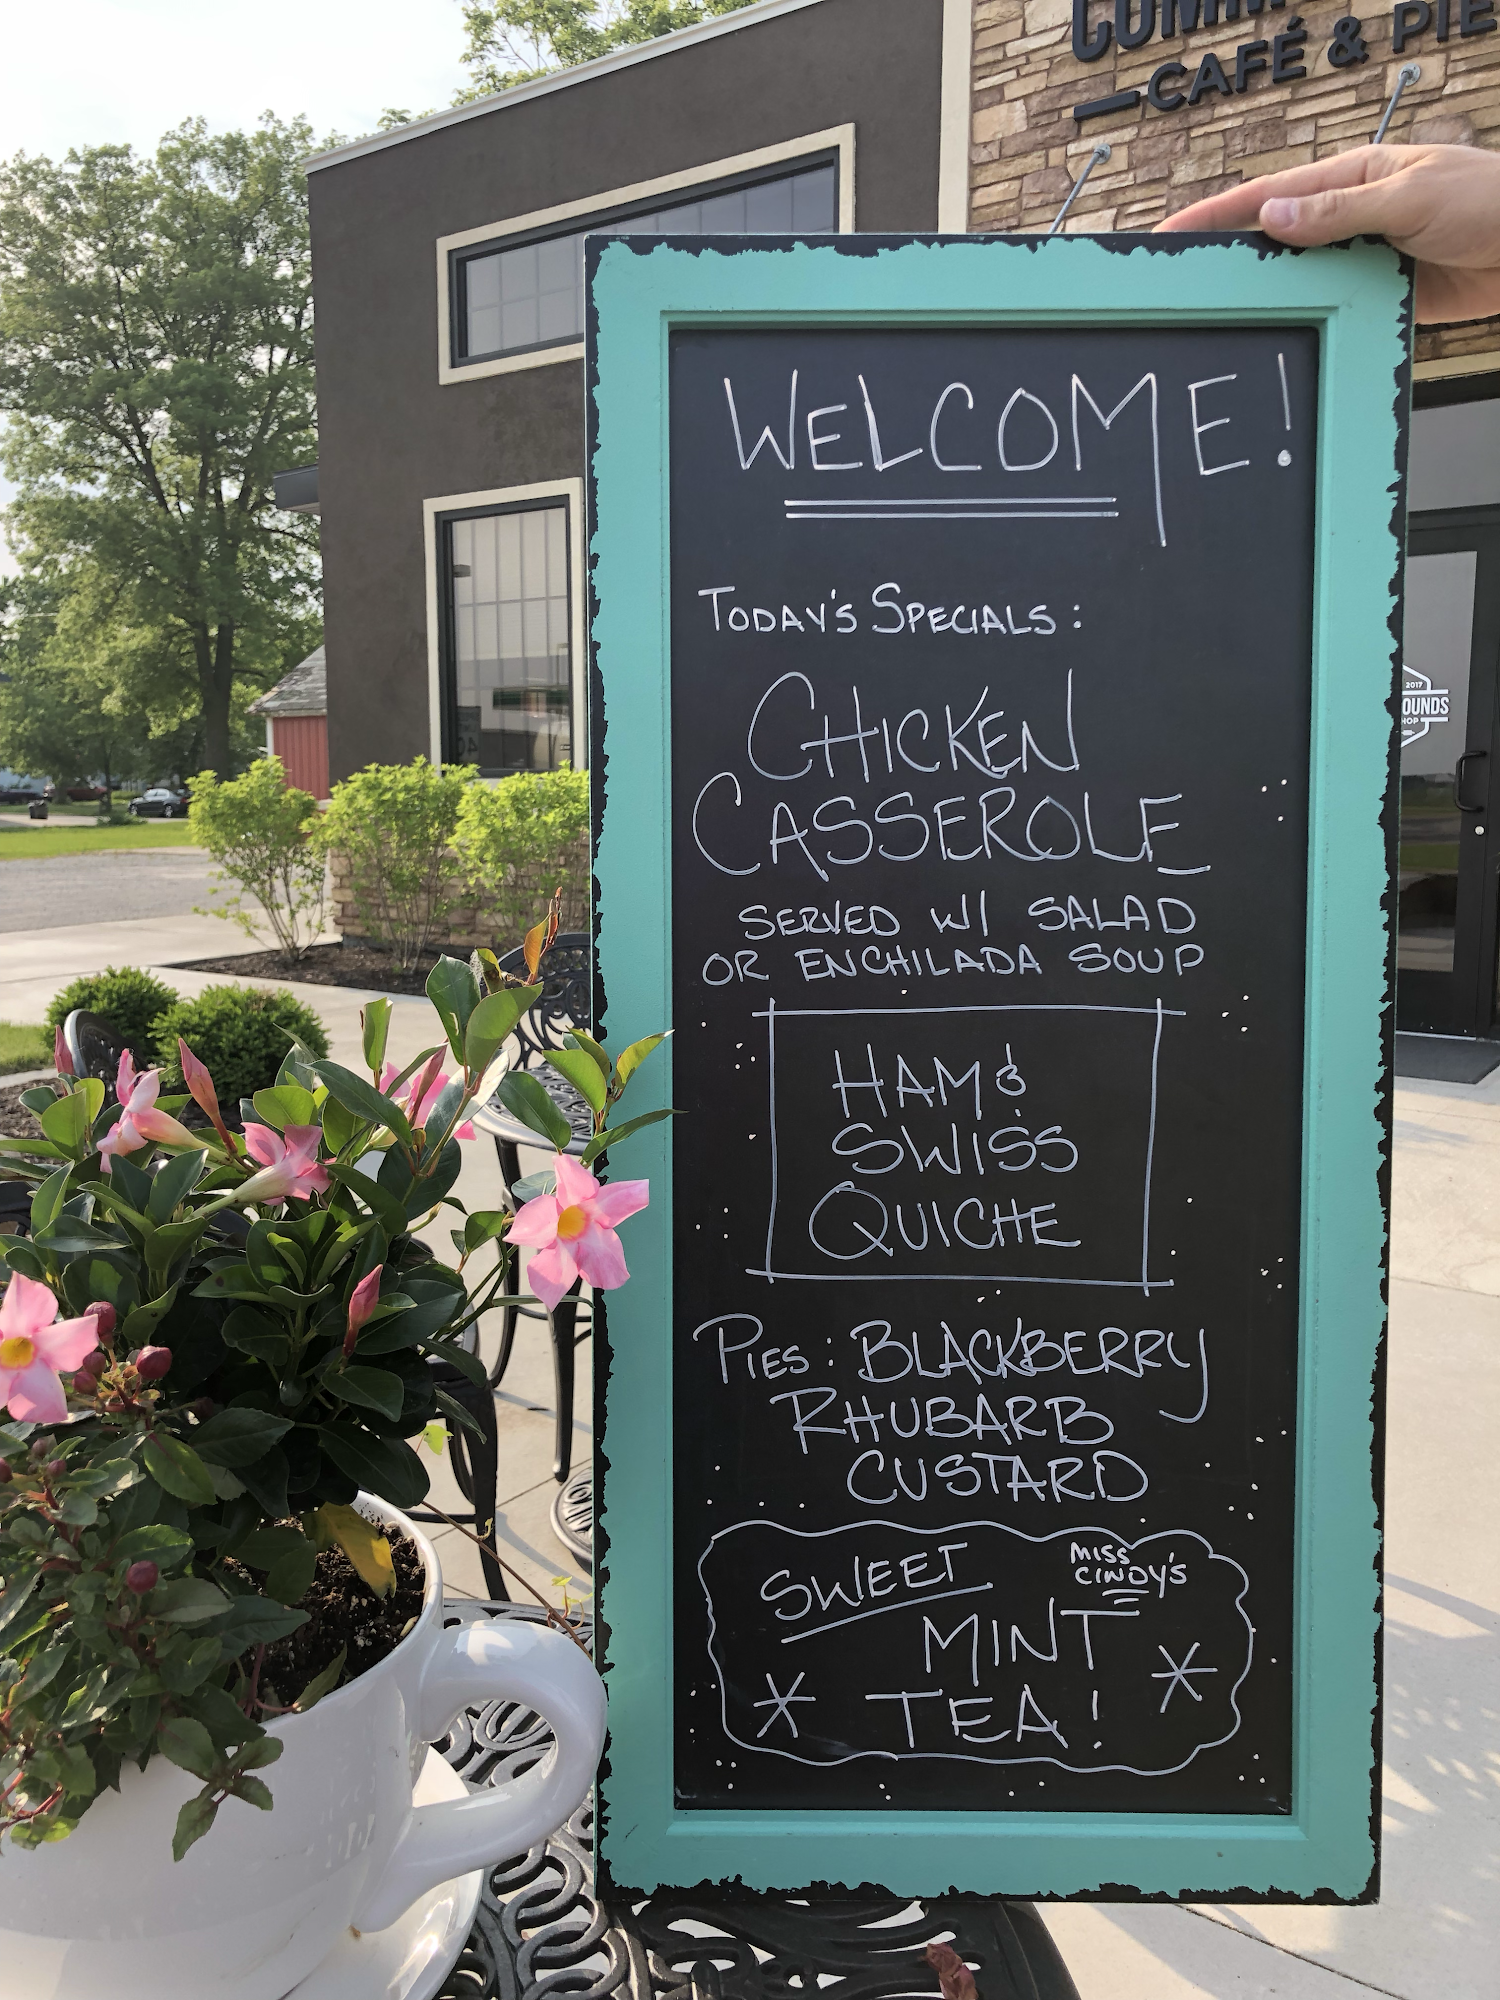 CAFÉ & PIE
WELCOME!
TODAY'S SPECIALS:
CHICKEN
CASSEROLE
SERVED W/ SALAD
OR ENCHILADA SOUP
HAM &
SWISS
QUICHE
PIES: BLACKBERRY
RHUBARB
CUSTARD
SWEET
MISS
CINDY'S
MINT
TEA!
2017
OUNDS
HOP